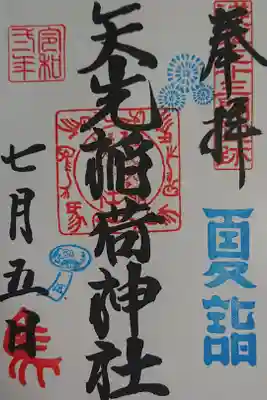 奉拝
夏詣
矢先稲荷神社
令和
弐年
七月五日